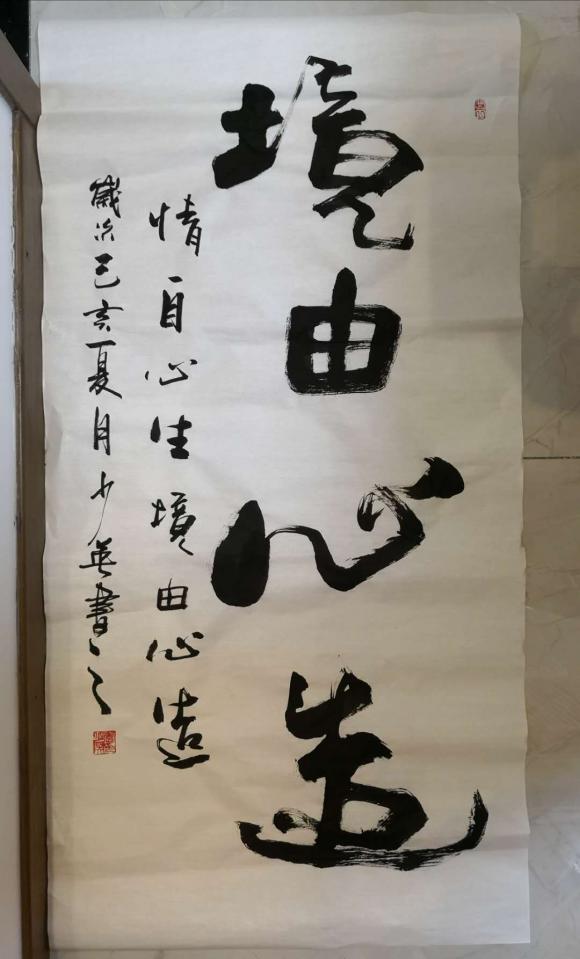 境由心造
情自心生境由心造
岁次己亥夏月少英书之